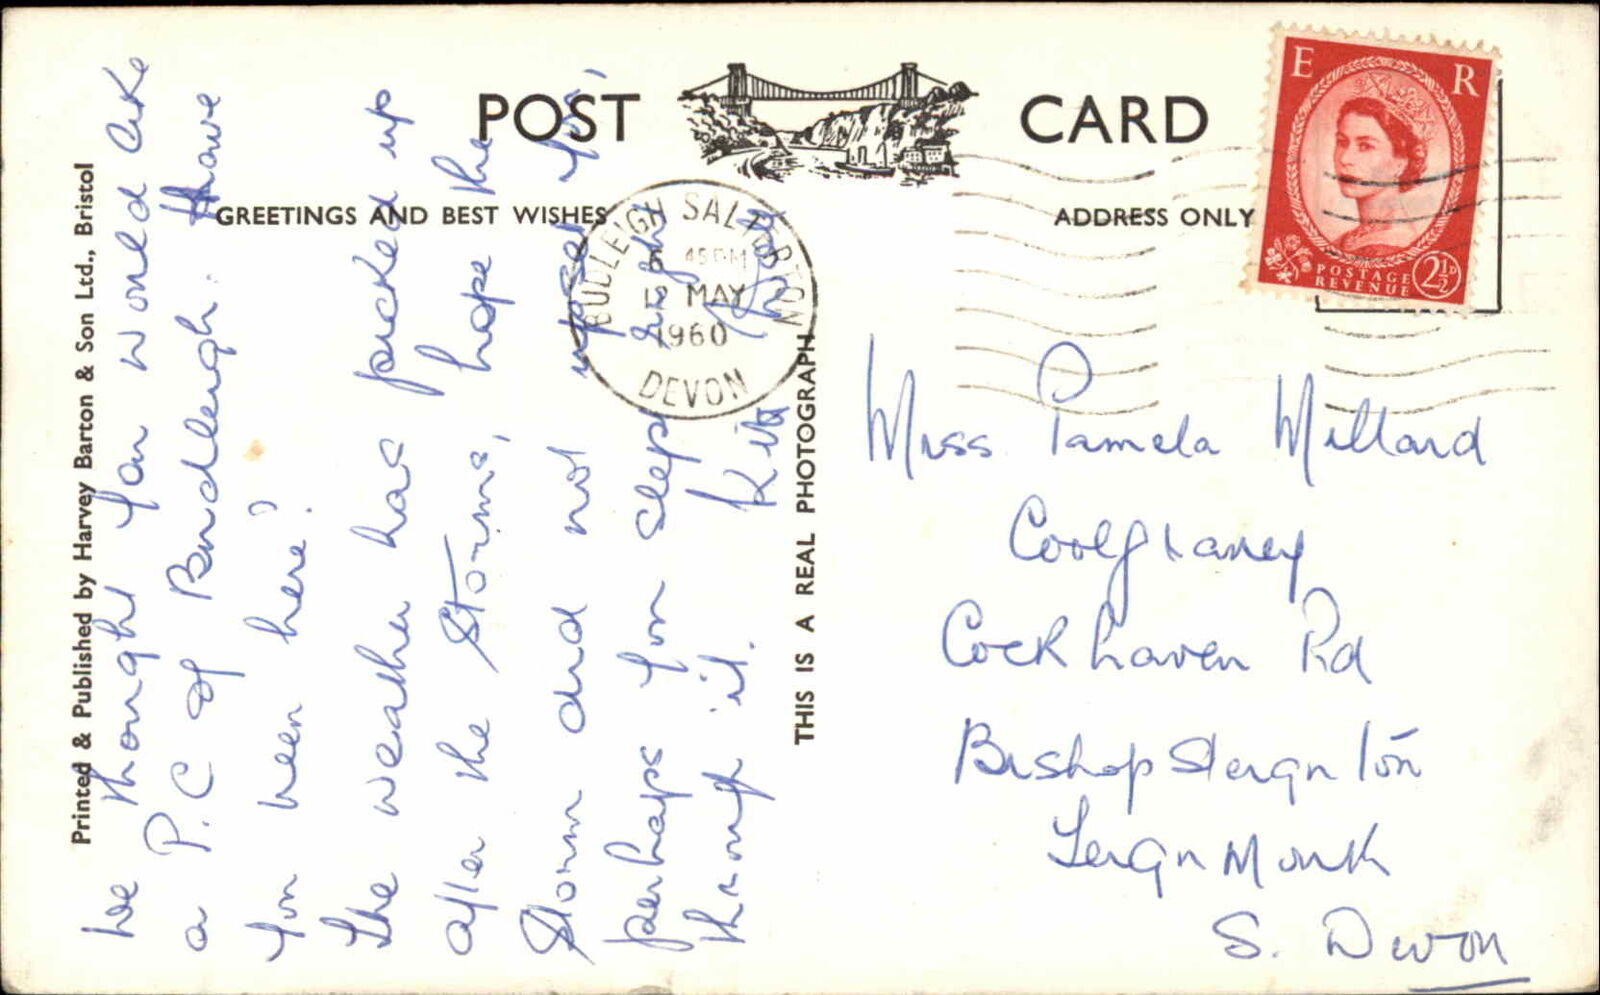 POST CARD
GREETINGS AND BEST WISHES
ADDRESS ONLY
Printed & Published by Harvey Barton & Son Ltd., Bristol
THIS IS A REAL PHOTOGRAPH
E R
POSTAGE
REVENUE
2½D
BUDLEIGH SALTERTON
45 PM
12 MAY
1960
DEVON
We thought you would like
a P.C of Budleigh. Have
you been here?
The weather has picked up
after the storms, hope the
storm did not upset you,
perhaps you slept right
through it. Kit
Miss Pamela Millard
Coolgraney
Cockhaven Rd
Bishopsteignton
Teignmouth
S. Devon